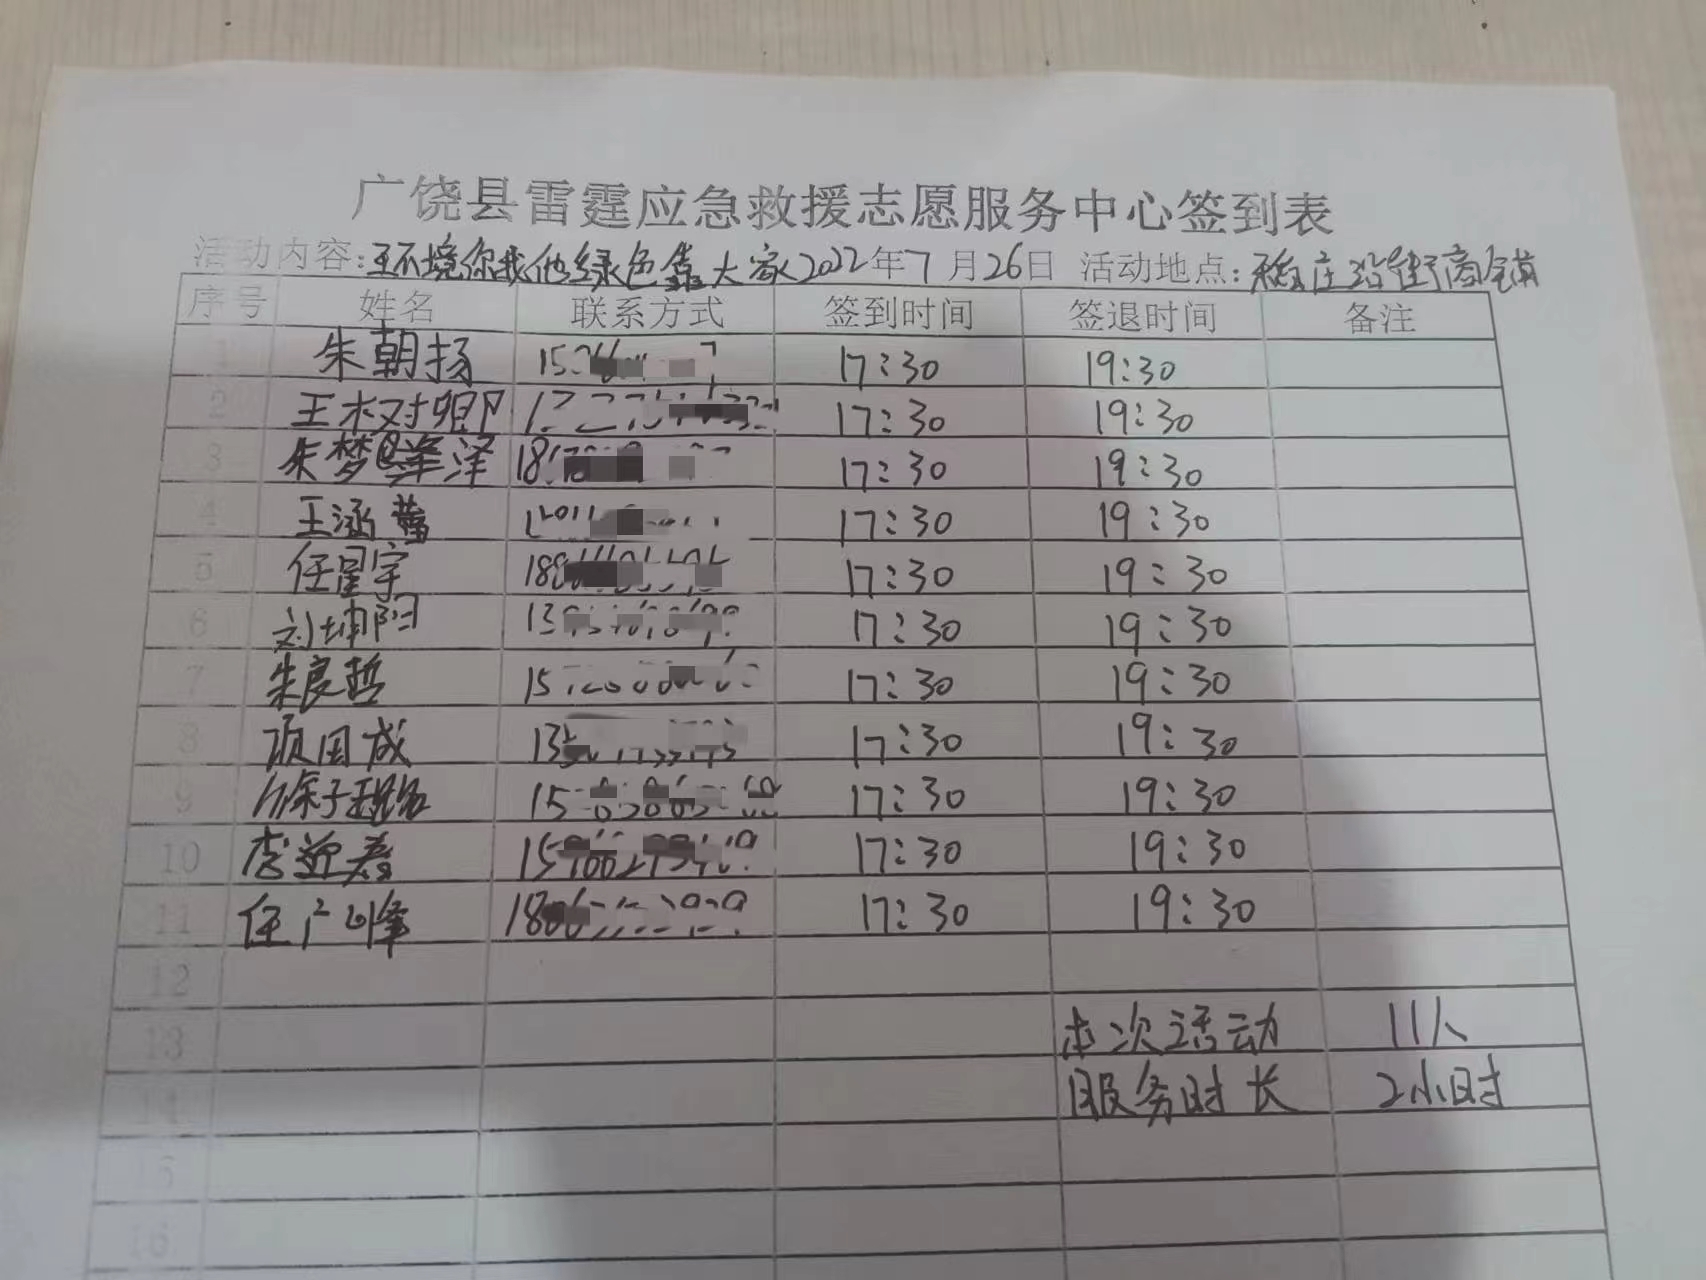 广饶县雷霆应急救援志愿服务中心签到表
活动内容:环境你我他绿色靠大家2022年7月26日 活动地点:庄沿街商铺
序号 姓名 联系方式 签到时间 签退时间 备注
1 朱朝扬 17:30 19:30
2 王树卿 17:30 19:30
3 朱梦泽 17:30 19:30
4 王涵 17:30 19:30
5 任星宇 17:30 19:30
6 刘坤阳 17:30 19:30
7 朱良哲 17:30 19:30
8 项国成 17:30 19:30
9 徐子 17:30 19:30
10 李迎春 17:30 19:30
11 任广峰 17:30 19:30
12
13 本次活动 11人
14 服务时长 2小时
15
16